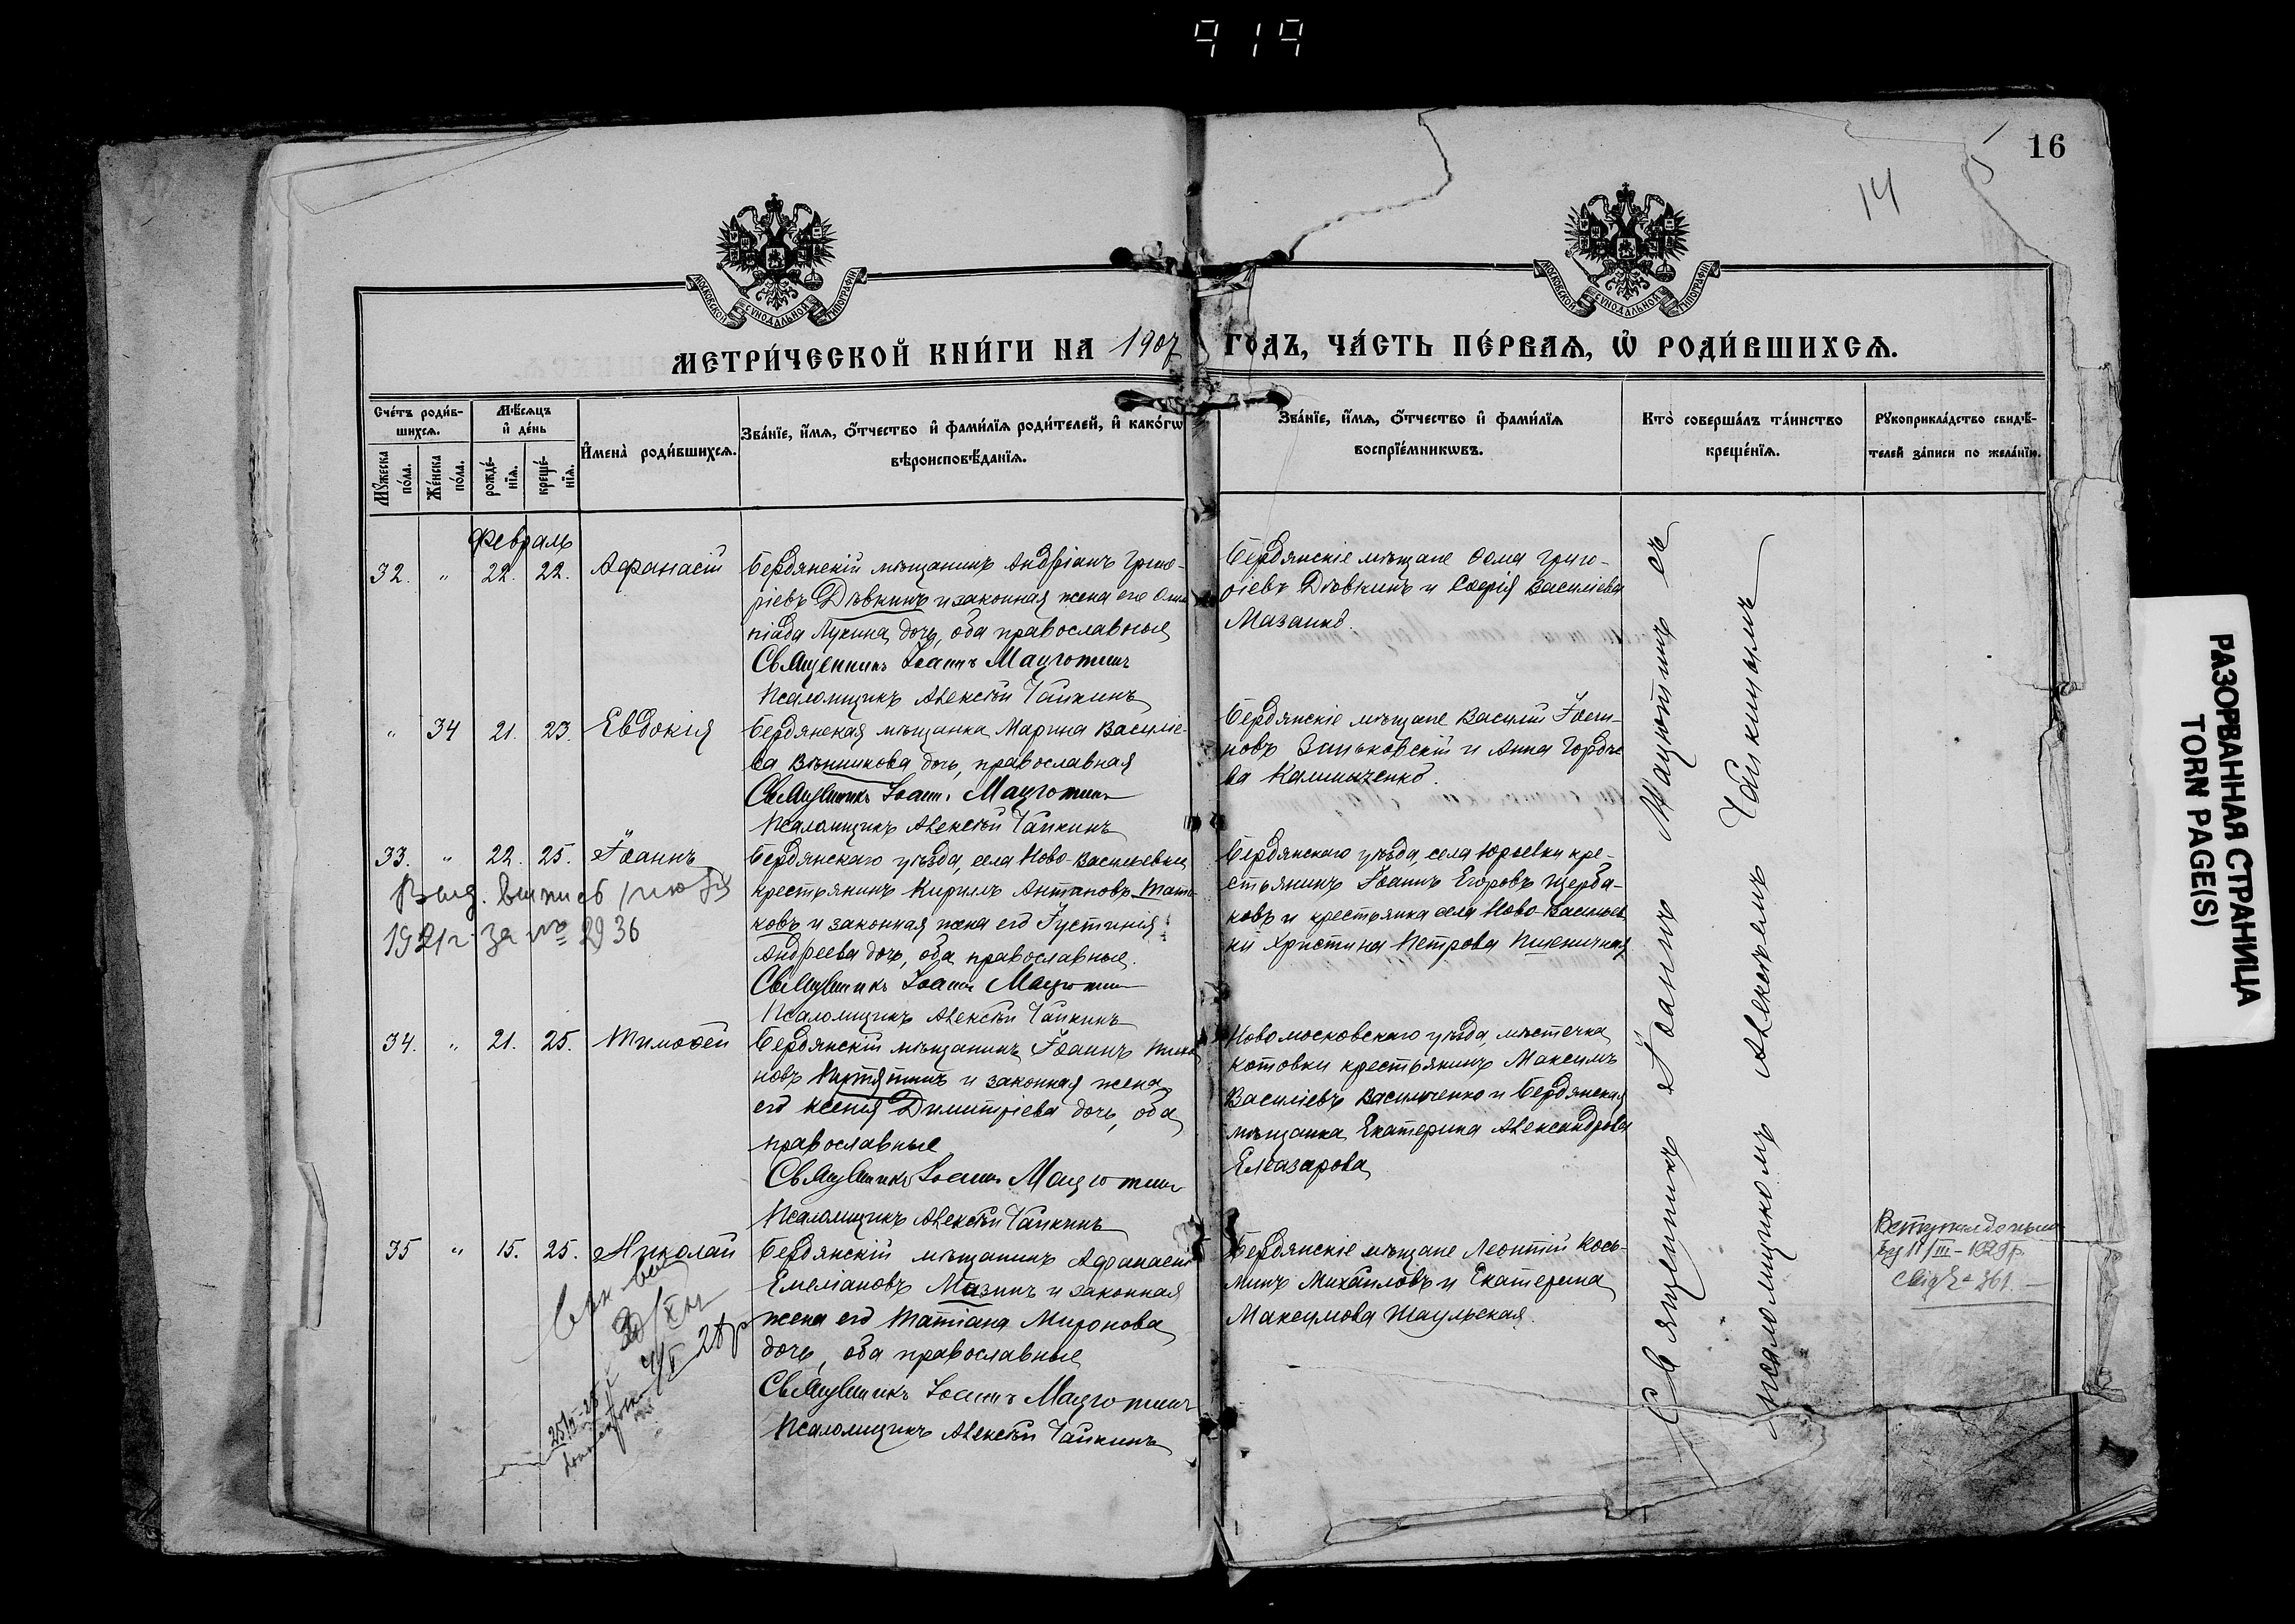 919
16
14
МОСКОВСКОЙ СѴНОДАЛЬНОЙ ТИПОГРАФІИ
МОСКОВСКОЙ СѴНОДАЛЬНОЙ ТИПОГРАФІИ
МЕТРИ́ЧЕСКОЙ КНИ́ГИ НА 1907 ГОДЪ, ЧА́СТЬ ПЕ́РВАѦ, Ѡ РОДИ́ВШИХСѦ.
Сче́тъ роди́в-
шихсѧ.
Му́жеска
по́ла.
Же́нска
по́ла.
Мѣ́сѧцъ
и де́нь
рожде́-
нїѧ.
креще́-
нїѧ.
Имена̀ роди́вшихсѧ.
Зва́нїе, и́мѧ, ѻ́тчество и фами́лїѧ роди́телей, и како́гѡ
вѣроисповѣ́данїѧ.
Зва́нїе, и́мѧ, ѻ́тчество и фами́лїѧ
воспрїе́мникѡвъ.
Кто̀ соверша́лъ та́инство
креще́нїѧ.
Рꙋкоприкла́дство свидѣ́-
телей за́писи по жела́нїю.
Февраль
32. " 22. 22. Афанасій
Бердянскій мѣщанинъ Андріанъ Григо-
ріевъ Дѣвкинъ и законная жена его Олим
піада Лукина дочь, оба православные
Священникъ Іоаннъ Мацютинъ
Псаломщикъ Алексѣй Чайкинъ
Бердянскіе мѣщане Ѳома Григо-
ріевъ Дѣвкинъ и Софія Василіева
Мазанко.
" 34 21. 23. Евдокія
Бердянская мѣщанка Марина Василіе-
ва Вѣнникова дочь, православная
Священникъ Іоаннъ Мацютинъ
Псаломщикъ Алексѣй Чайкинъ
Бердянскіе мѣщане Василій Іоан-
новъ Заньковскій и Анна Гордѣе
ва Калиниченко.
33. " 22. 25. Іоаннъ
Выд. выпись
1921 г. за № 2936
Бердянскаго уѣзда, села Ново-Васильевки
крестьянинъ Кириллъ Антоновъ Тать-
ковъ и законная жена его Іустинія
Андреева дочь, оба православные.
Священникъ Іоаннъ Мацютинъ
Псаломщикъ Алексѣй Чайкинъ
Бердянскаго уѣзда, села Юрьевки кре-
стьянинъ Іоаннъ Егоровъ Щерба-
ковъ и крестьянка села Ново-Васильев
ки Христина Петрова Пшеничная
34. " 21. 25. Тимоѳей
Бердянскій мѣщанинъ Іоаннъ
новъ Путятинъ и законная жена
его Ксенія Димитріева дочь, оба
православные
Священникъ Іоаннъ Мацютинъ
Псаломщикъ Алексѣй Чайкинъ
Новомосковскаго уѣзда, мѣстечка
Котовки крестьянинъ Максимъ
Василіевъ Васильченко и Бердянская
мѣщанка Екатерина Александрова
Елеазарова
35 " 15. 25. Николай
Бердянскій мѣщанинъ Афанасій
Емеліановъ Мазинъ и законная
жена его Татіана Миронова
дочь, оба православные
Священникъ Іоаннъ Мацютинъ
Псаломщикъ Алексѣй Чайкинъ
Бердянскіе мѣщане Леонтій Кось-
минъ Михайловъ и Екатерина
Максимова Шаульская.
Священникъ Іоаннъ Мацютинъ съ
псаломщикомъ Алексѣемъ Чайкинымъ
11/III - 1929 р.
РАЗОРВАННАЯ СТРАНИЦА
TORN PAGE(S)